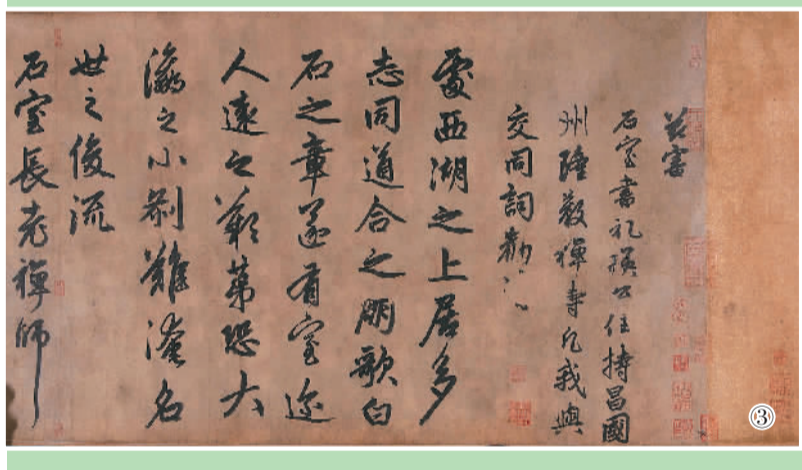 茲審
石室書記瑛公住持昌國
州隆教禪寺凡我與
交同詞勸請
處西湖之上居多
志同道合之朋歌白
石之章遂有室迩
人遠之歎第恐大
瀛之小刹難淹名
世之俊流
石室長老禪師
③